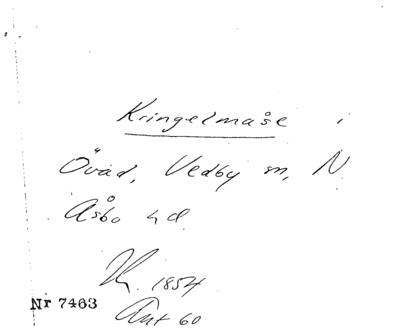 Kringelmåse i
Övad, Vedby sn, N.
Åsbo hd.
1854
Nr 7463
Ant 60